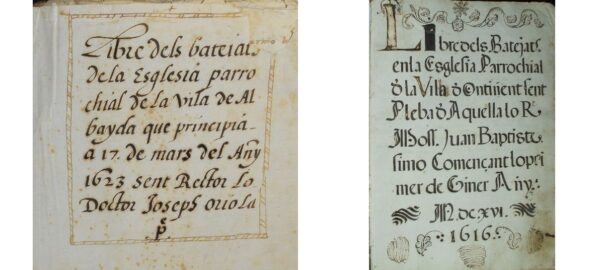 Libre dels bateiats
de la Esglesia parro
chial de la vila de Al
bayda que principia
a 17 de mars del Any
1623 sent Rector lo
Doctor Joseph Oriola
p.
Libre dels Batejats
en la Esglesia Parrochial
d la Vila d Ontinent sent
Pleba d Aquella lo R.
Moss. Juan Baptiste
simo Començant lo pri
mer de Giner Any.
M.dc.xvi.
1616.